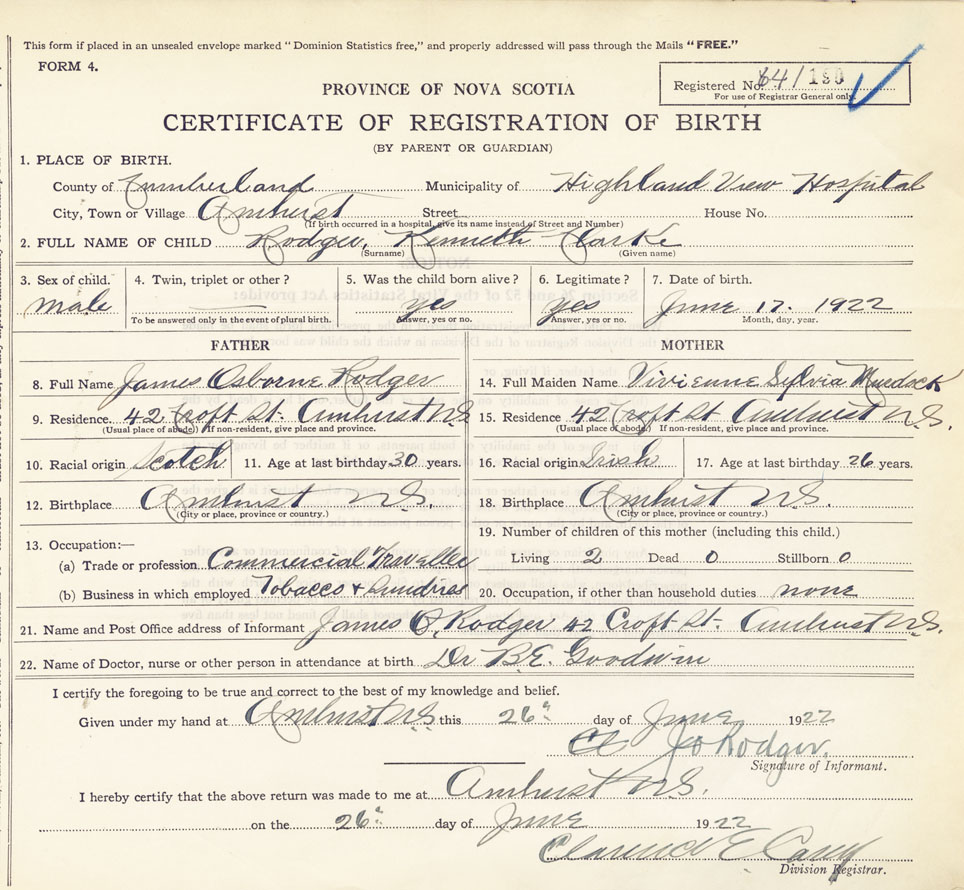 This form if placed in an unsealed envelope marked "Dominion Statistics free," and properly addressed will pass through the Mails "FREE."
FORM 4.
Registered No. 64/190
For use of Registrar General only.
PROVINCE OF NOVA SCOTIA
CERTIFICATE OF REGISTRATION OF BIRTH
(BY PARENT OR GUARDIAN)
1. PLACE OF BIRTH.
County of Cumberland Municipality of Highland View Hospital
City, Town or Village Amherst Street House No.
(If birth occurred in a hospital, give its name instead of Street and Number)
2. FULL NAME OF CHILD Rodger, Kenneth Clarke
(Surname) (Given name)
3. Sex of child. 4. Twin, triplet or other? 5. Was the child born alive? 6. Legitimate? 7. Date of birth.
male yes yes June 17. 1922
To be answered only in the event of plural birth. Answer, yes or no. Answer, yes or no. Month, day, year.
FATHER MOTHER
8. Full Name James Osborne Rodger 14. Full Maiden Name Vivienne Sylvia Murdock
9. Residence. 42 Croft St. Amherst N.S. 15. Residence 42 Croft St Amherst N.S.
(Usual place of abode) If non-resident, give place and province. (Usual place of abode) If non-resident, give place and province.
10. Racial origin Scotch 11. Age at last birthday 30 years. 16. Racial origin Irish 17. Age at last birthday 26 years.
12. Birthplace Amherst N.S. 18. Birthplace Amherst N.S.
(City or place, province or country.) (City or place, province or country.)
13. Occupation:— 19. Number of children of this mother (including this child.)
(a) Trade or profession Commercial Traveller Living 2 Dead 0 Stillborn 0
(b) Business in which employed Tobacco & Sundries 20. Occupation, if other than household duties none
21. Name and Post Office address of Informant James O. Rodger 42 Croft St. Amherst N.S.
22. Name of Doctor, nurse or other person in attendance at birth Dr B.E. Goodwin
I certify the foregoing to be true and correct to the best of my knowledge and belief.
Given under my hand at Amherst N.S. this 26" day of June 1922
J O Rodger.
Signature of Informant.
I hereby certify that the above return was made to me at Amherst N.S.
on the 26" day of June 1922
Clarence E Casey
Division Registrar.